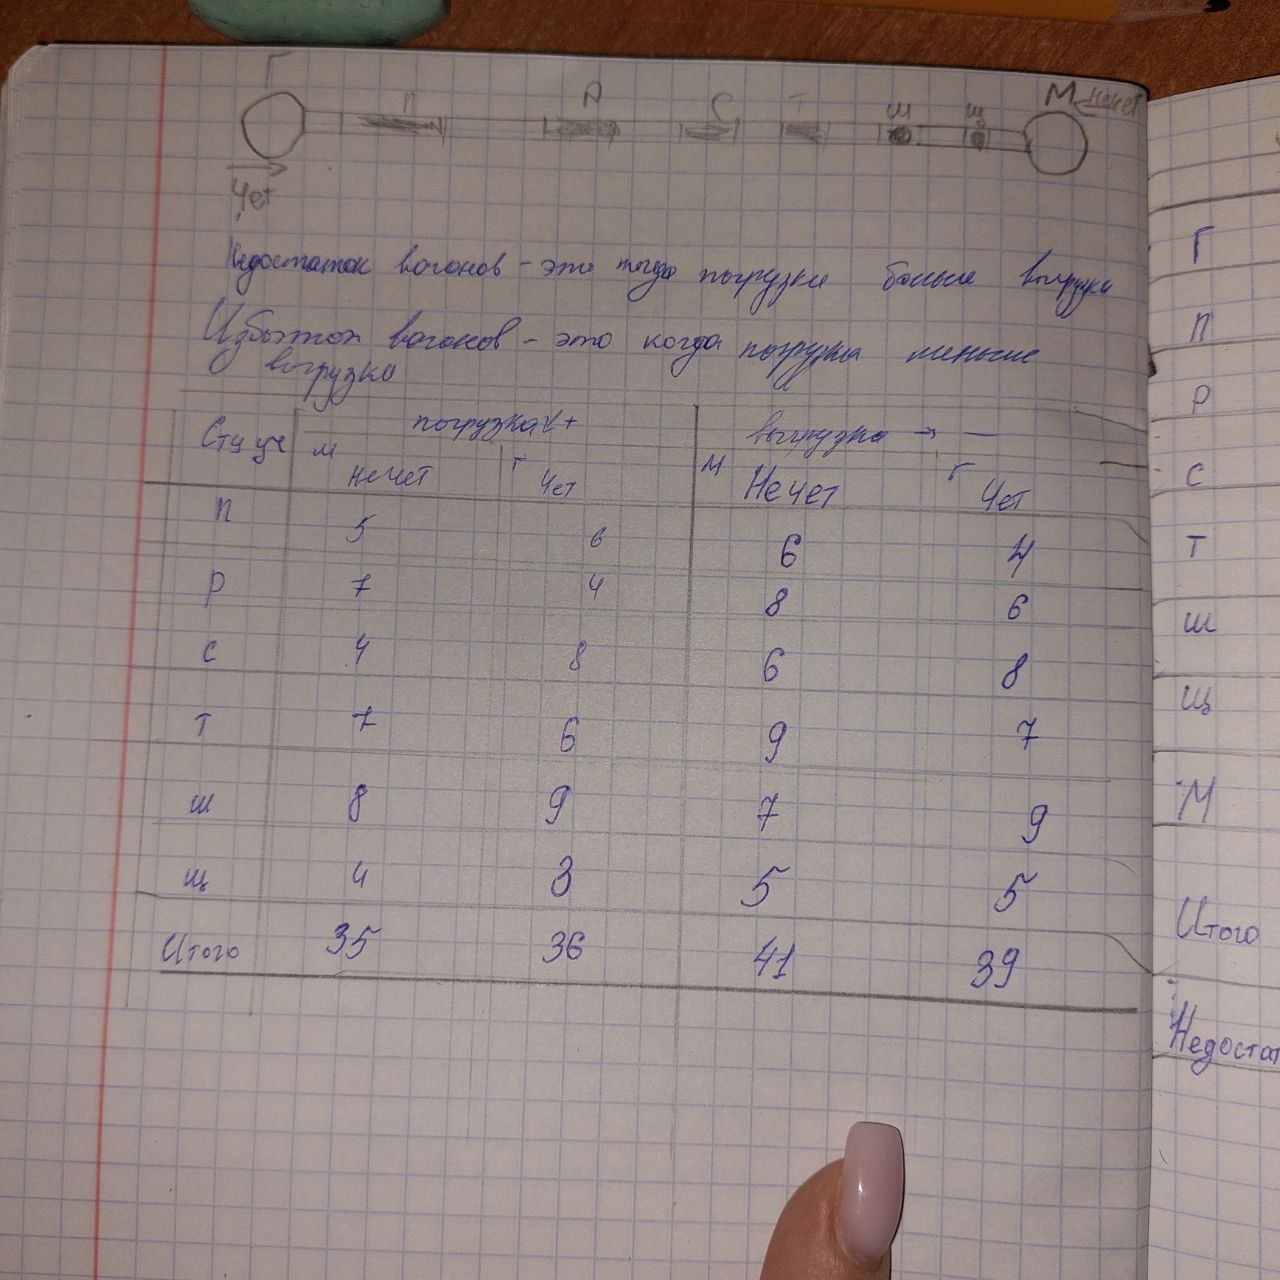 Г
П Р С Т Ш Щ М нечет
Чет
Недостаток вагонов - это тогда погрузки больше выгрузки
Избыток вагонов - это когда погрузка меньше
выгрузка
погрузка +
выгрузка → —
М нечет Г Чет М Нечет Г Чет
П 5 6 6 4
Р 7 4 8 6
С 4 8 6 8
Т 7 6 9 7
Ш 8 9 7 9
Щ 4 3 5 5
Итого 35 36 41 39
Г
П
Р
С
Т
Ш
Щ
М
Итого
Недостат